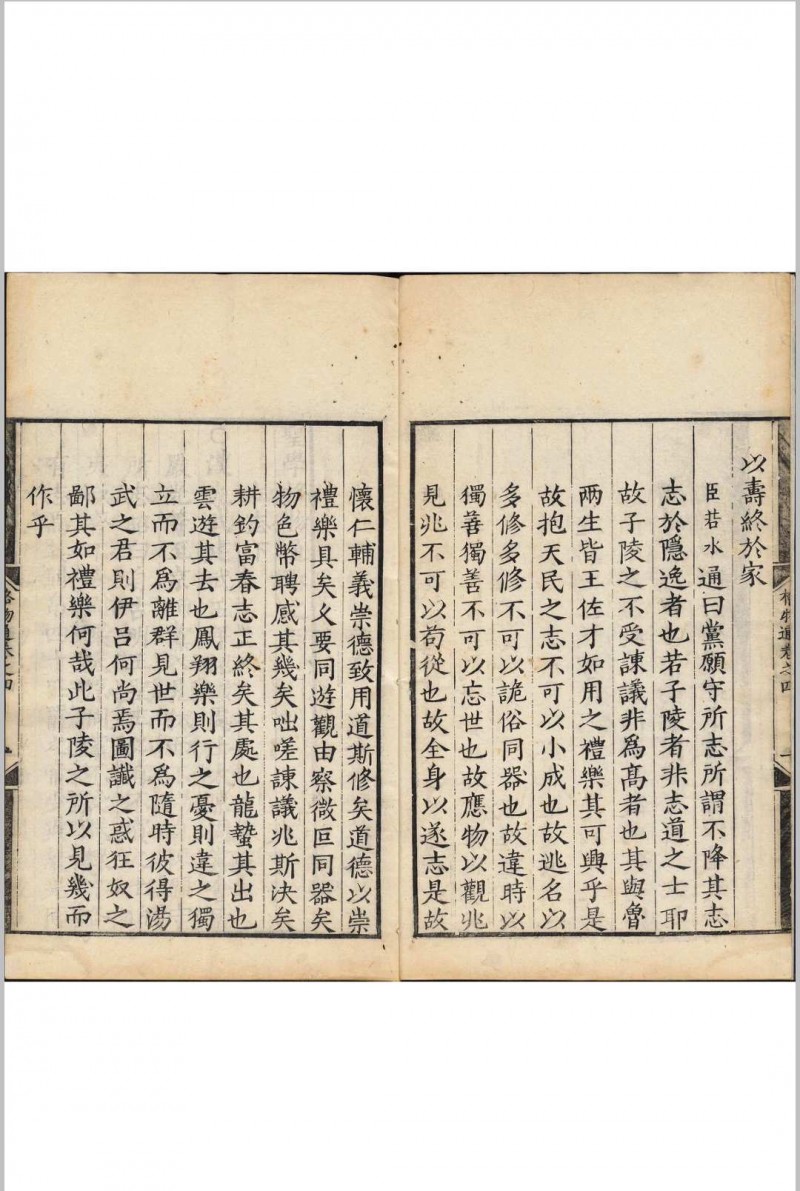 以壽終於家
臣若水通曰黨願守所志所謂不降其志
志於隱逸者也若子陵者非志道之士耶
故子陵之不受諫議非為髙者也其與魯
兩生皆王佐才如用之禮樂其可興乎是
故抱天民之志不可以小成也故逃名以
多修多修不可以詭俗同器也故違時以
獨善獨善不可以忘世也故應物以觀兆
見兆不可以苟從也故全身以遂志是故
格物通卷之四
懷仁輔義崇德致用道斯修矣道德以崇
禮樂具矣乂要同遊觀由察微叵同器矣
物色幣聘感其幾矣咄嗟諫議兆斯决矣
耕釣富春志正終矣其處也龍蟄其出也
雲遊其去也鳳翔樂則行之憂則違之獨
立而不為離群見世而不為隨時彼得湯
武之君則伊吕何尚焉圖讖之惑狂奴之
鄙其如禮樂何哉此子陵之所以見幾而
作乎
格物通卷之四